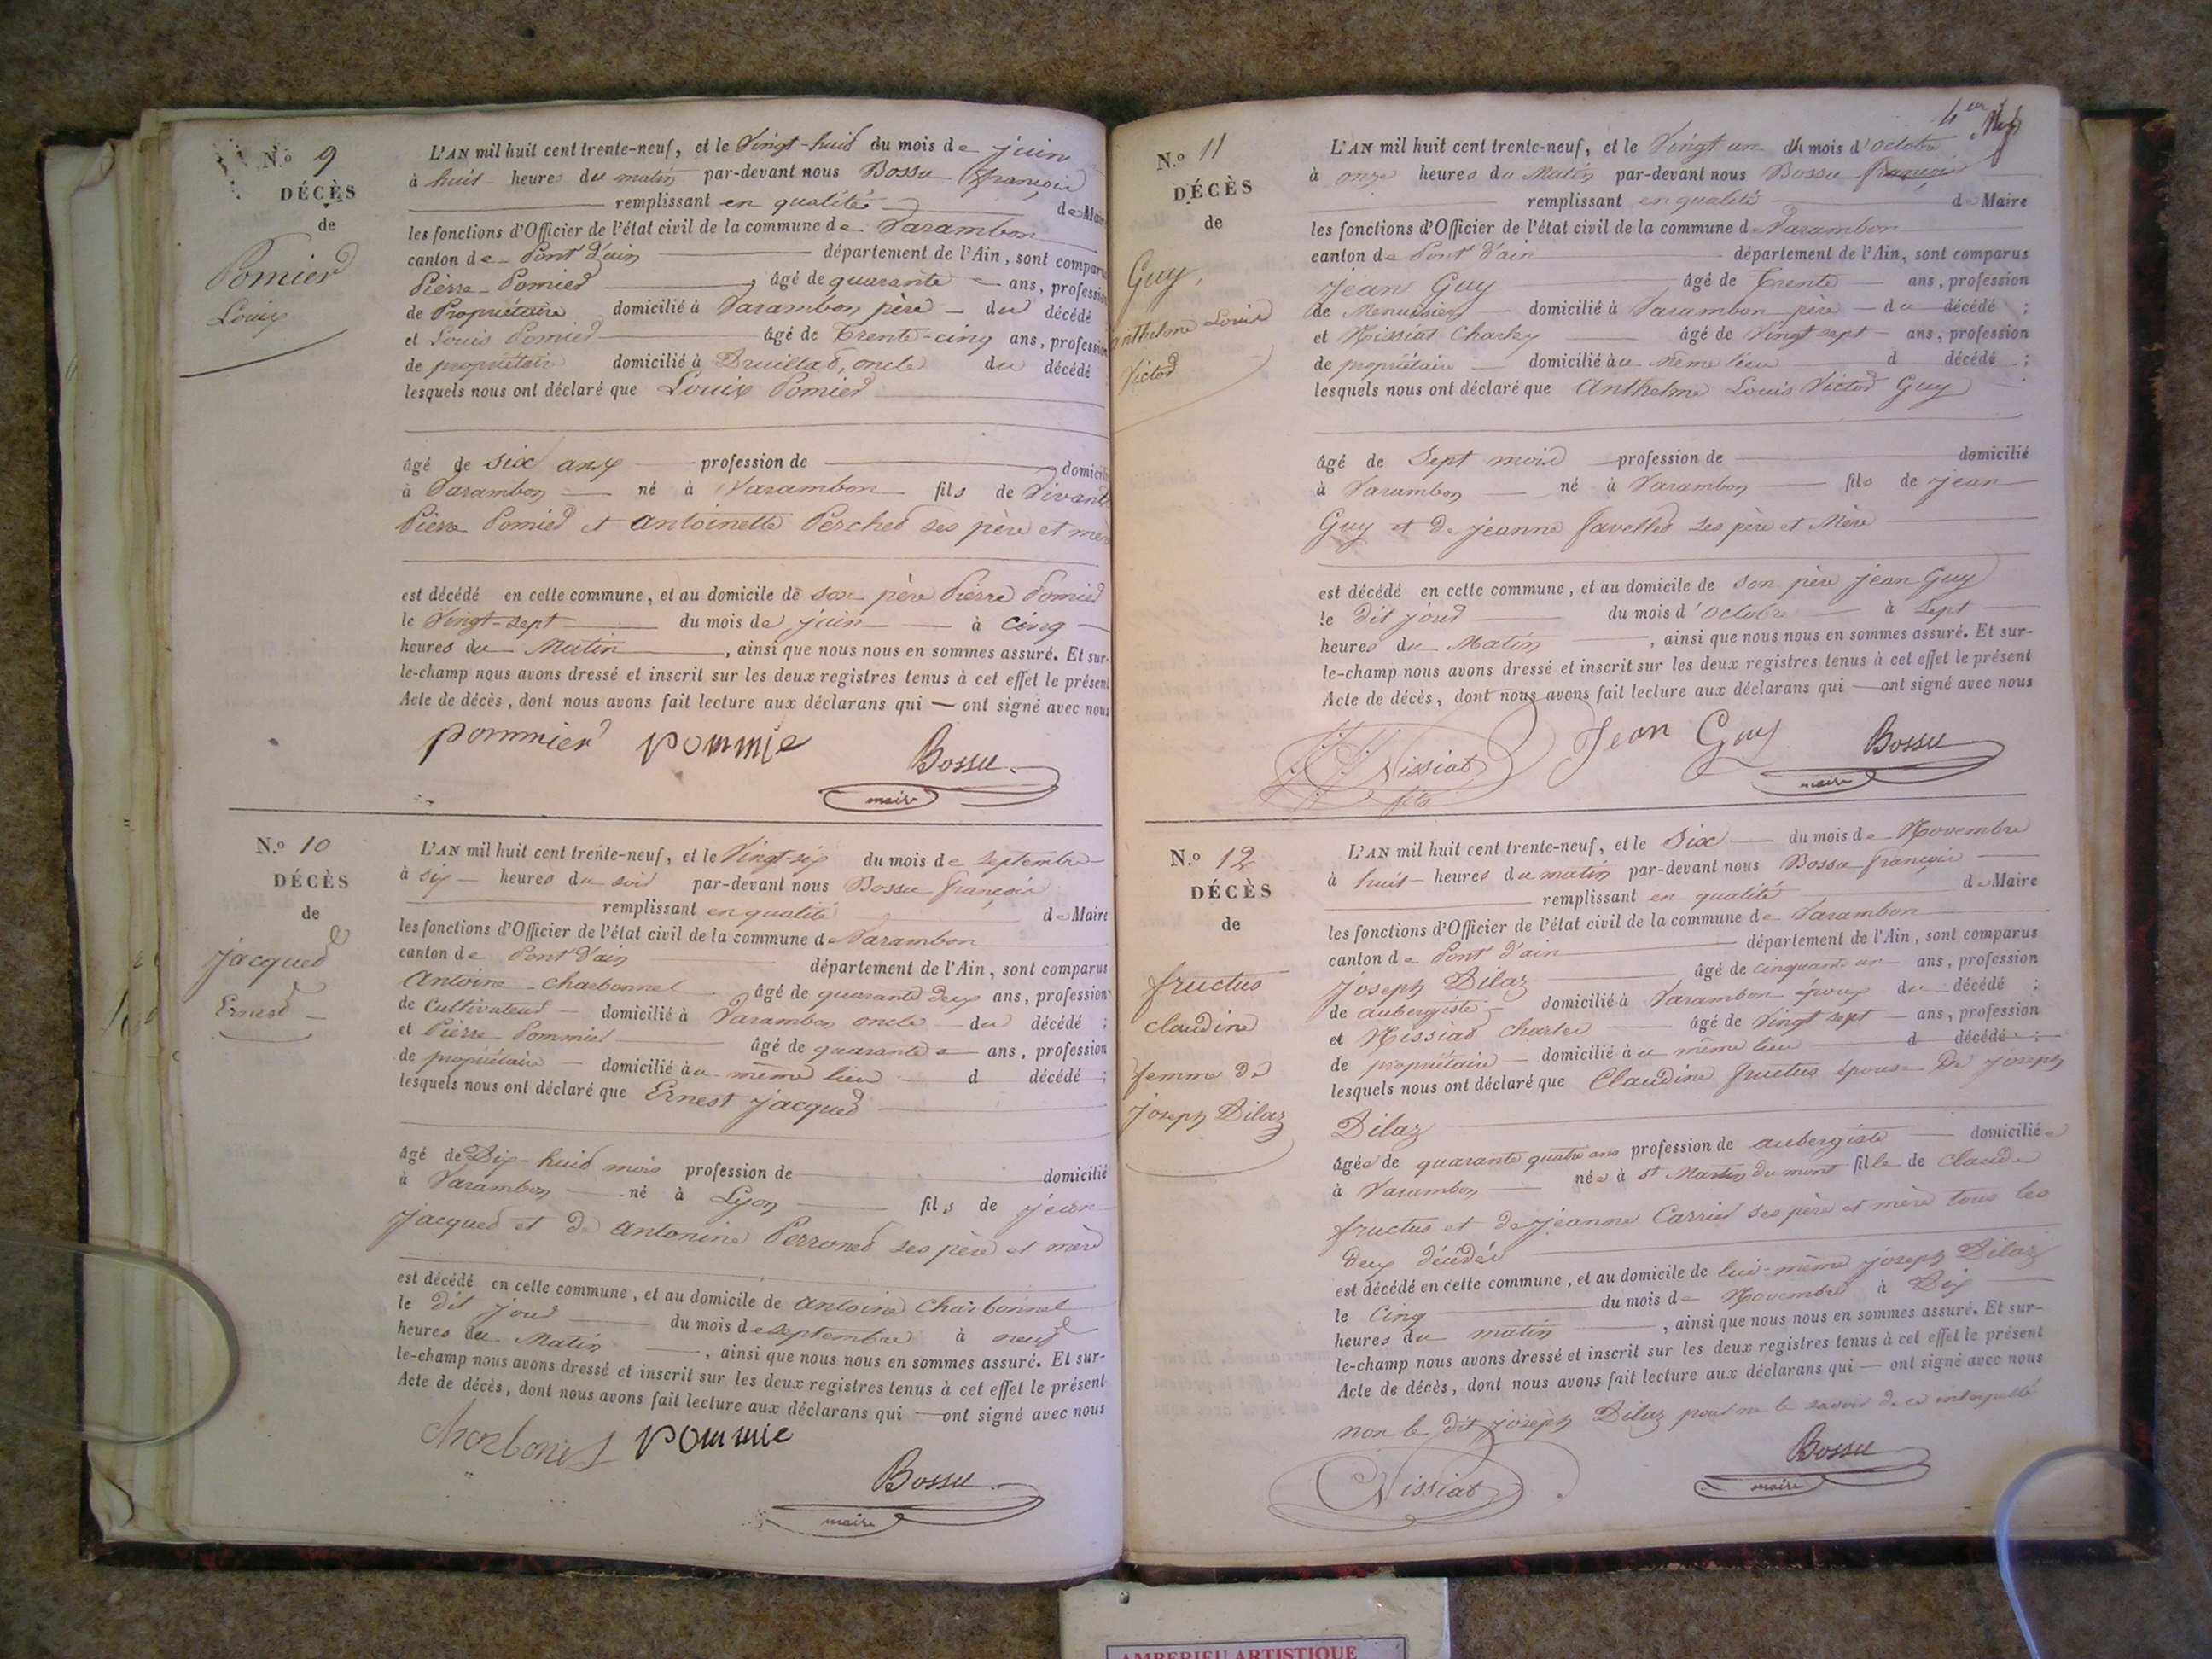 N.o 9
DÉCÈS
de
Pomier
Louis
L'AN mil huit cent trente-neuf, et le Vingt-huit du mois de juin
à huit heures du matin par-devant nous Bossu françois
remplissant en qualité de Maire
les fonctions d'Officier de l'état civil de la commune de Varambon
canton de Pont d'ain département de l'Ain, sont comparus
Pierre Pomier, âgé de quarante ans, profession
de Propriétaire domicilié à Varambon père du décédé
et Louis Pomier âgé de Trente-cinq ans, profession
de propriétaire domicilié à Druillat, oncle du décédé
lesquels nous ont déclaré que Louis Pomier
âgé de six ans profession de domicilié
à Varambon né à Varambon fils de Vivants
Pierre Pomier et antoinette Percher ses père et mère
est décédé en cette commune, et au domicile de son père Pierre Pomier
le Vingt-sept du mois de juin à cinq
heures du Matin, ainsi que nous nous en sommes assuré. Et sur-
le-champ nous avons dressé et inscrit sur les deux registres tenus à cet effet le présent
Acte de décès, dont nous avons fait lecture aux déclarans qui — ont signé avec nous
pommier pommie Bossu
maire
N.o 10
DÉCÈS
de
jacques
Ernest
L'AN mil huit cent trente-neuf, et le Vingt-six du mois de septembre
à six heures du soir par-devant nous Bossu françois
remplissant en qualité de Maire
les fonctions d'Officier de l'état civil de la commune de Varambon
canton de Pont d'ain département de l'Ain, sont comparus
Antoine charbonnel âgé de quarante deux ans, profession
de Cultivateur domicilié à Varambon oncle du décédé ;
et Pierre Pommier âgé de quarante ans, profession
de propriétaire domicilié au même lieu d décédé ;
lesquels nous ont déclaré que Ernest jacques
âgé de Dix-huit mois profession de domicilié
à Varambon né à Lyon fils de jean
jacques et de antonine Perronet ses père et mère
est décédé en cette commune, et au domicile de antoine charbonnel
le dit jour du mois de septembre à neuf
heures du Matin, ainsi que nous nous en sommes assuré. Et sur-
le-champ nous avons dressé et inscrit sur les deux registres tenus à cet effet le présent
Acte de décès, dont nous avons fait lecture aux déclarans qui — ont signé avec nous
pommie
Bossu
maire
N.o 11
DÉCÈS
de
Guy,
anthelme Louis
Victor
L'AN mil huit cent trente-neuf, et le Vingt un du mois d'octobre
à onze heures du Matin par-devant nous Bossu françois
remplissant en qualité de Maire
les fonctions d'Officier de l'état civil de la commune de Varambon
canton de Pont d'ain département de l'Ain, sont comparus
jean Guy âgé de Trente ans, profession
de Menuisier domicilié à Varambon père du décédé ;
et Nissiat Charles âgé de Vingt sept ans, profession
de propriétaire domicilié au même lieu d décédé ;
lesquels nous ont déclaré que anthelme Louis Victor Guy
âgé de Sept mois profession de domicilié
à Varambon né à Varambon fils de jean
Guy et de jeanne favelle ses père et Mère
est décédé en cette commune, et au domicile de son père jean Guy
le dit jour du mois d'octobre à Sept
heures du Matin, ainsi que nous nous en sommes assuré. Et sur-
le-champ nous avons dressé et inscrit sur les deux registres tenus à cet effet le présent
Acte de décès, dont nous avons fait lecture aux déclarans qui — ont signé avec nous
Nissiat Jean Guy Bossu
fils maire
N.o 12
DÉCÈS
de
fructus
claudine
femme de
joseph Dilaz
L'AN mil huit cent trente-neuf, et le Six du mois de Novembre
à huit heures du matin par-devant nous Bossu françois
remplissant en qualité de Maire
les fonctions d'Officier de l'état civil de la commune de Varambon
canton de Pont d'ain département de l'Ain, sont comparus
joseph Dilaz âgé de cinquante un ans, profession
de aubergiste domicilié à Varambon époux du décédé ;
et Nissiat charles âgé de Vingt sept ans, profession
de propriétaire domicilié au même lieu d décédé ;
lesquels nous ont déclaré que Claudine fructus épouse De joseph
Dilaz
âgée de quarante quatre ans profession de aubergiste domiciliée
à Varambon née à St Martin du mont fille de Claude
fructus et de jeanne Carrier ses père et mère tous les
deux décédés
est décédé en cette commune, et au domicile de lui-même joseph Dilaz
le Cinq du mois de Novembre à Dix
heures du matin, ainsi que nous nous en sommes assuré. Et sur-
le-champ nous avons dressé et inscrit sur les deux registres tenus à cet effet le présent
Acte de décès, dont nous avons fait lecture aux déclarans qui — ont signé avec nous
non le dit joseph Dilaz pour ne le savoir de ce interpellé
Nissiat Bossu
maire
AMBERIEU ARTISTIQUE